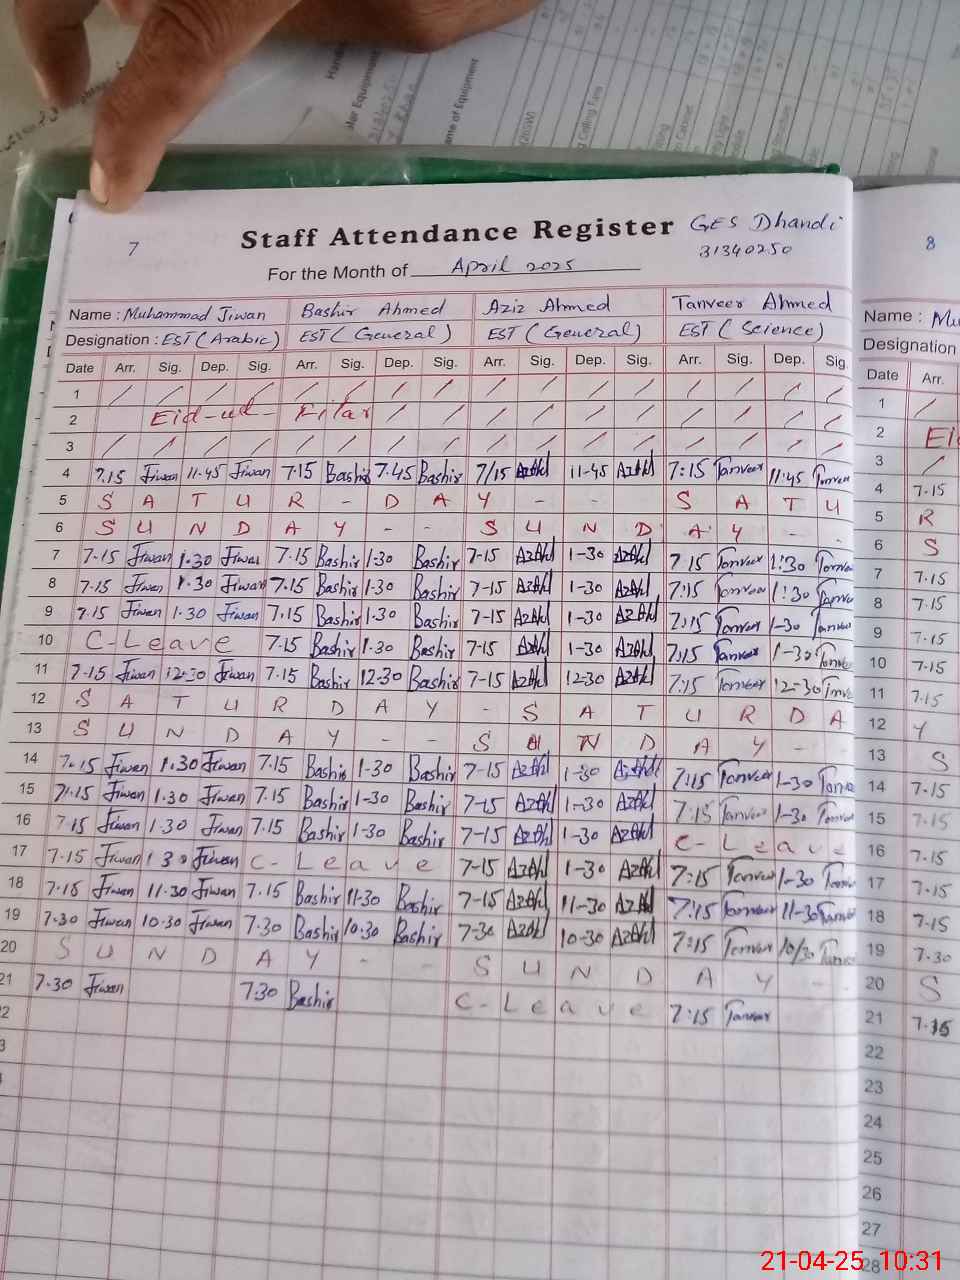 7 Staff Attendance Register GES Dhandi 8
31340250
For the Month of April 2025
Name : Muhammad Jiwan Bashir Ahmed Aziz Ahmed Tanveer Ahmed Name : Mu
Designation : EST (Arabic) EST (General) EST (General) EST (Science) Designation
Date Arr. Sig. Dep. Sig. Arr. Sig. Dep. Sig. Arr. Sig. Dep. Sig. Arr. Sig. Dep. Sig. Date Arr.
1 / / / / / / / / / / / / / / / / 1 /
2 Eid-ud-Fitar / / / / / / / / / / 2 Eid
3 / / / / / / / / / / / / / / / / 3 /
4 7.15 Jiwan 11-45 Jiwan 7.15 Bashir 7.45 Bashir 7/15 11-45 7:15 Tanveer 11:45 Tanvee 4 7.15
5 S A T U R - D A Y - - S A T U 5 R
6 S U N D A Y - - S U N D A Y - - 6 S
7 7-15 Jiwan 1.30 Jiwan 7.15 Bashir 1-30 Bashir 7-15 1-30 7 15 Tanveer 1:30 Tanvee 7 7.15
8 7-15 Jiwan 1.30 Jiwan 7.15 Bashir 1.30 Bashir 7-15 1-30 7:15 Tanveer 1:30 Tanve 8 7.15
9 7.15 Jiwan 1.30 Jiwan 7.15 Bashir 1.30 Bashir 7-15 1-30 7:15 Tanveer 1-30 Tanvee 9 7.15
10 C-Leave 7.15 Bashir 1.30 Bashir 7-15 1-30 7:15 Tanveer 1-30 Tanvee 10 7.15
11 7-15 Jiwan 12-30 Jiwan 7.15 Bashir 12.30 Bashir 7-15 12-30 7:15 Tanveer 12-30 Tnvee 11 7.15
12 S A T U R D A Y - S A T U R D A 12 Y
13 S U N D A Y - - S U N D A Y - - 13 S
14 7.15 Jiwan 1.30 Jiwan 7.15 Bashir 1-30 Bashir 7-15 1-30 7:15 Tanveer 1-30 Tanve 14 7-15
15 7.15 Jiwan 1.30 Jiwan 7.15 Bashir 1-30 Bashir 7-15 1-30 7:15 Tanveer 1-30 Tanve 15 7.15
16 7.15 Jiwan 1.30 Jiwan 7.15 Bashir 1-30 Bashir 7-15 1-30 C-Leave 16 7.15
17 7.15 Jiwan 1 30 Jiwan C-Leave 7-15 1-30 7:15 Tanveer 1-30 Tanve 17 7.15
18 7.15 Jiwan 11.30 Jiwan 7.15 Bashir 11-30 Bashir 7-15 11-30 7:15 Tanveer 11-30 Tanvee 18 7.15
19 7.30 Jiwan 10.30 Jiwan 7.30 Bashir 10:30 Bashir 7-30 10-30 7:15 Tanveer 10/30 Tanvee 19 7.30
20 S U N D A Y - - S U N D A Y - - 20 S
21 7.30 Jiwan 7.30 Bashir C-Leave 7:15 Tanveer 21 7.15
2 22
3 23
24
25
26
27
28
21-04-25 10:31